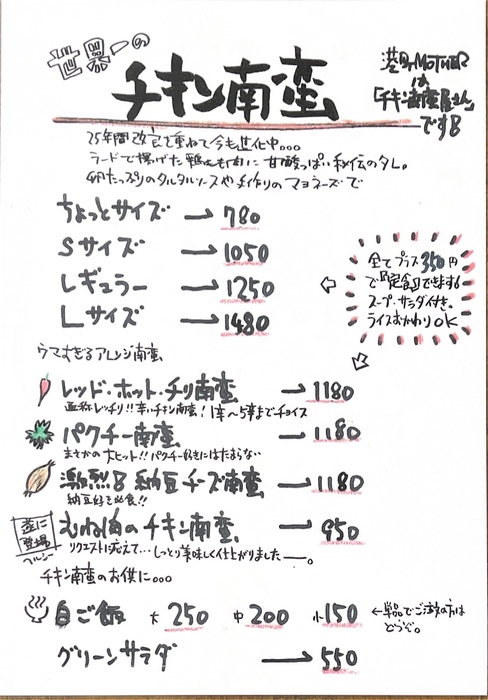 世界一の
チキン南蛮
MOTHER
は
「チキン南蛮屋さん」
です8
25年間改良を重ねて今も進化中...
ラードで揚げた鶏もも肉に甘酸っぱい秘伝のタレ。
卵たっぷりのタルタルソースや手作りのマヨネーズで
ちょっとサイズ → 780
Sサイズ → 1050
レギュラー → 1250
Lサイズ → 1480
全てプラス350円
で『定食』できます!
スープ・サラダ付き。
ライスおかわりOK
ウマすぎるアレンジ南蛮
レッド・ホット・チリ南蛮 → 1180
レッチリ!!辛いチキン南蛮!1辛〜5辛までチョイス
パクチー南蛮 → 1180
まさかの大ヒット!!パクチー好きにはたまらない
激烈8納豆チーズ南蛮 → 1180
納豆好き必食!!
遂に登場
ヘルシー
むね肉のチキン南蛮 → 950
リクエストに応えて...しっとり美味しく仕上がりました——。
チキン南蛮のお供に...
白ご飯 大250 中200 小150 ←単品でご注文の方は
どうぞ。
グリーンサラダ → 550